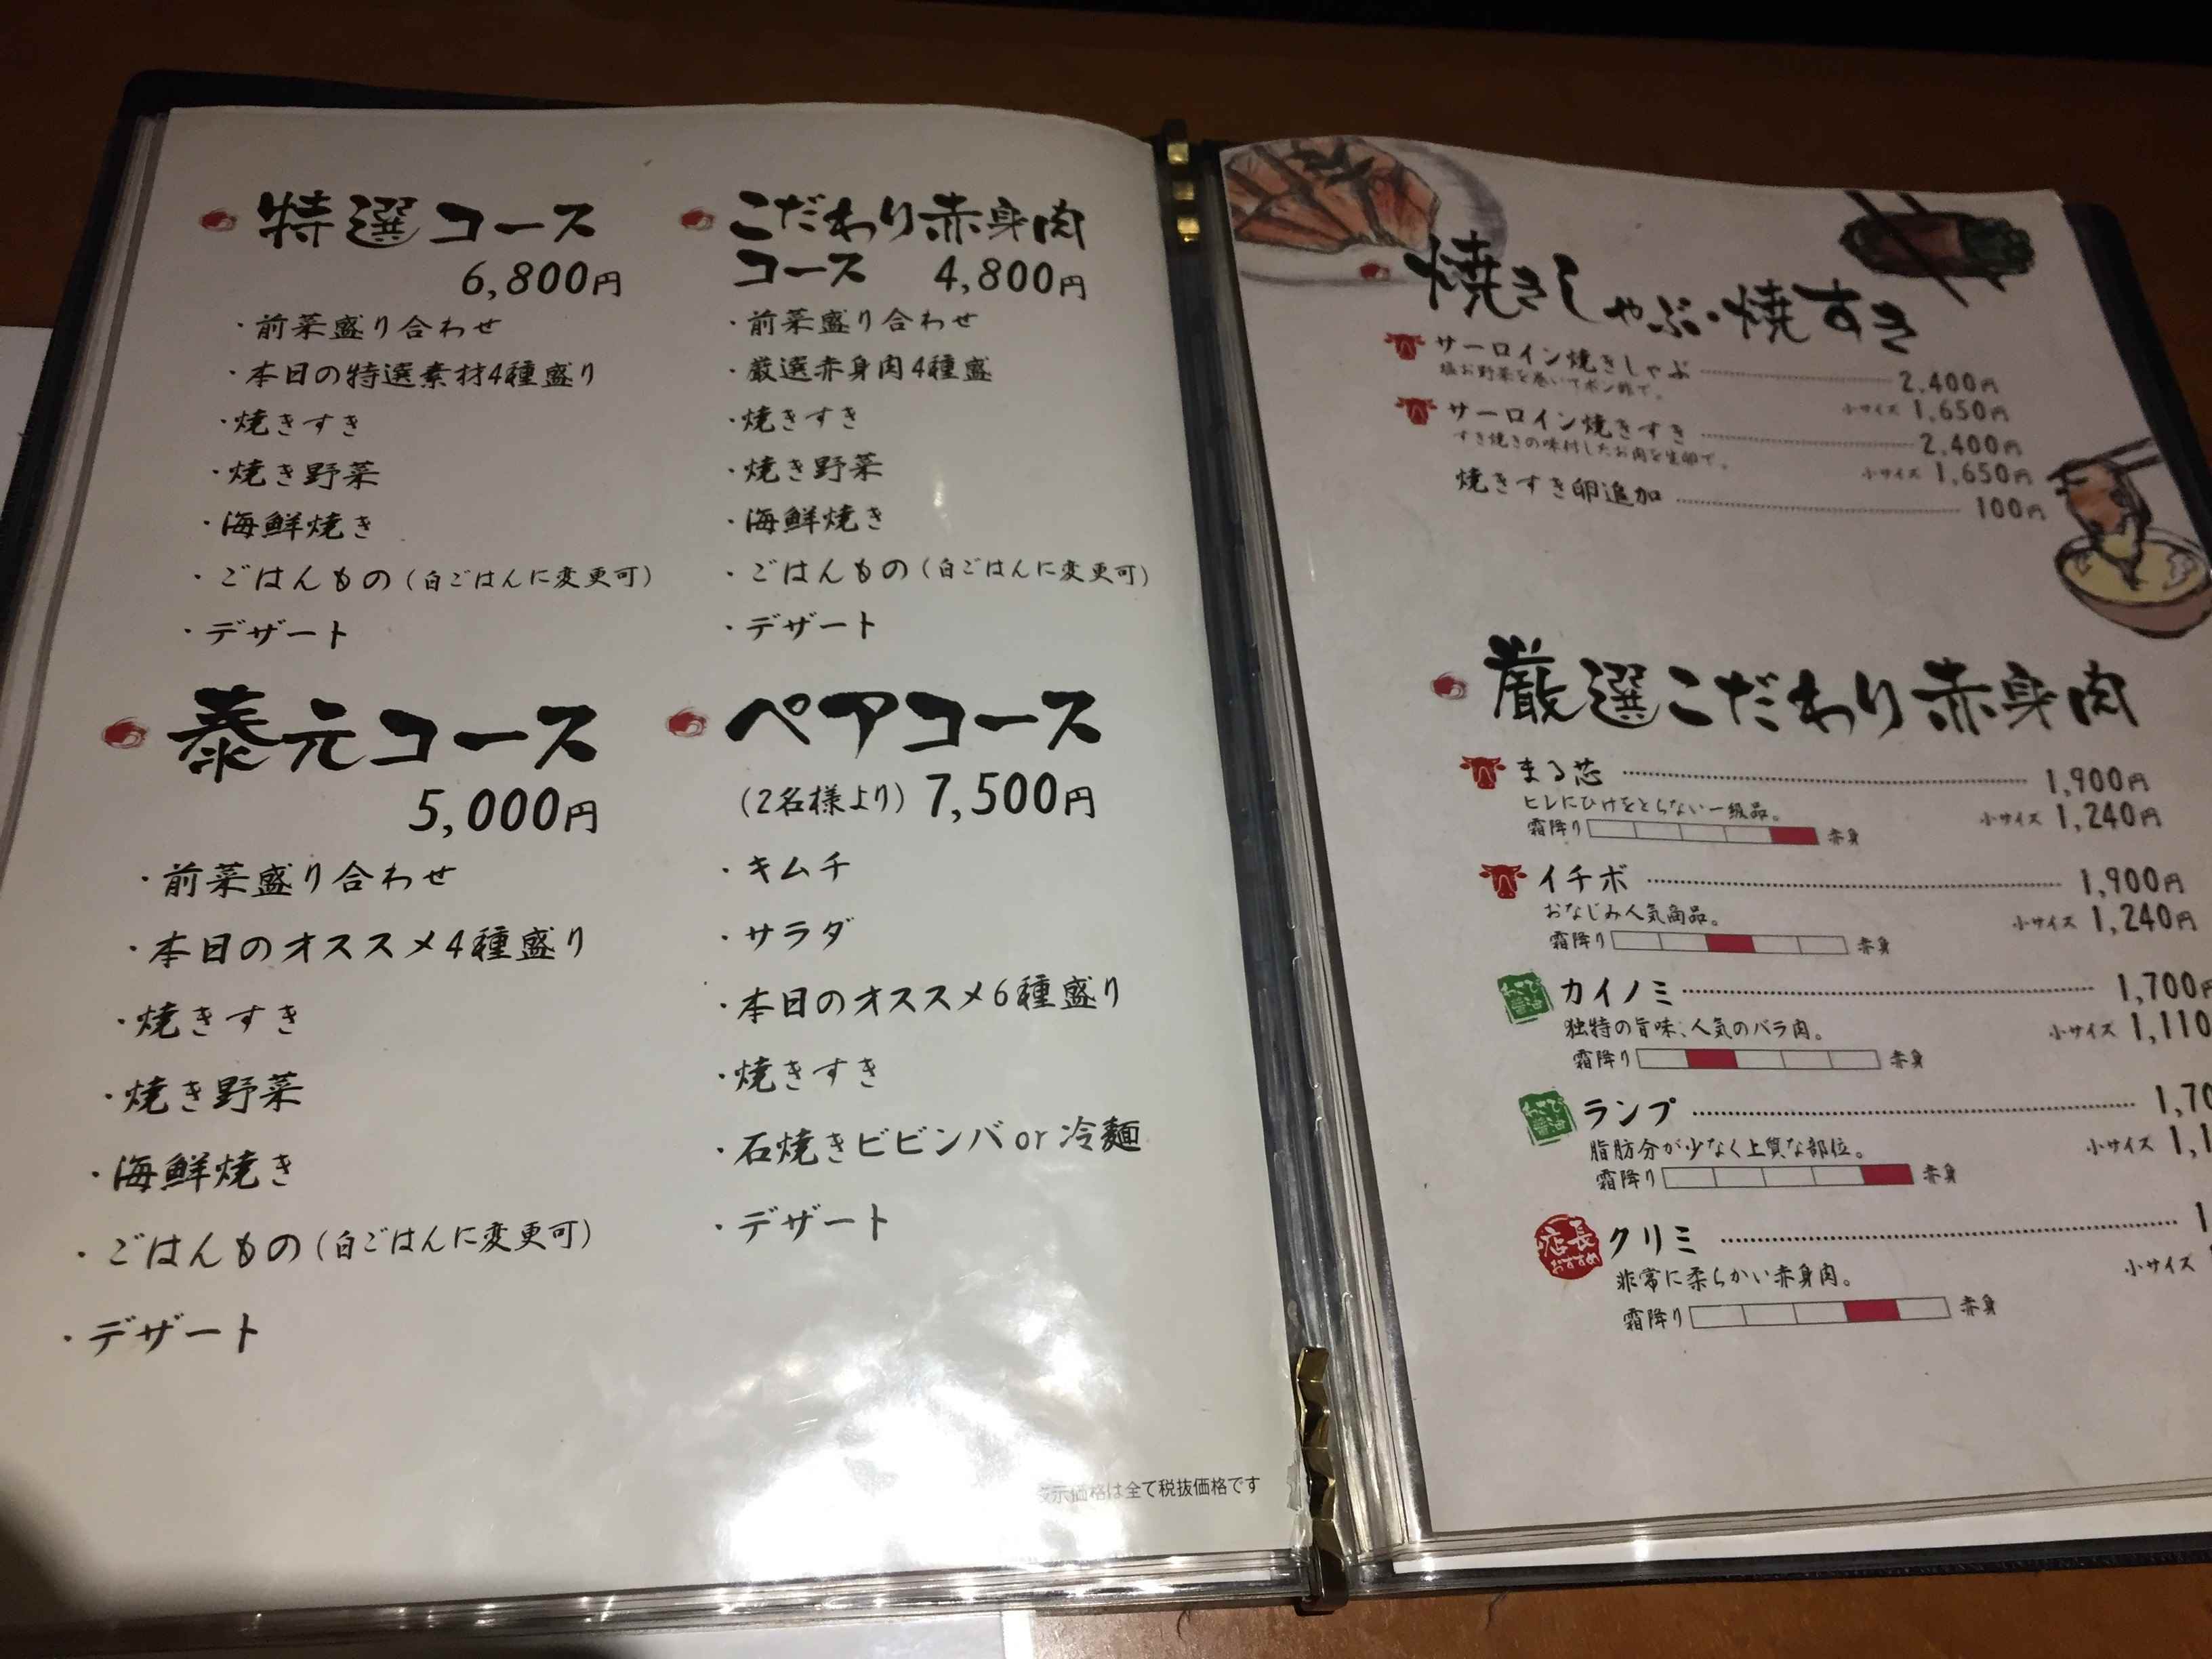 特選コース
6,800円
・前菜盛り合わせ
・本日の特選素材4種盛り
・焼きすき
・焼き野菜
・海鮮焼き
・ごはんもの（白ごはんに変更可）
・デザート
こだわり赤身肉
コース 4,800円
・前菜盛り合わせ
・厳選赤身肉4種盛
・焼きすき
・焼き野菜
・海鮮焼き
・ごはんもの（白ごはんに変更可）
・デザート
泰元コース
5,000円
・前菜盛り合わせ
・本日のオススメ4種盛り
・焼きすき
・焼き野菜
・海鮮焼き
・ごはんもの（白ごはんに変更可）
・デザート
ペアコース
（2名様より）7,500円
・キムチ
・サラダ
・本日のオススメ6種盛り
・焼きすき
・石焼きビビンバor冷麺
・デザート
表示価格は全て税抜価格です
焼きしゃぶ・焼すき
サーロイン焼きしゃぶ 2,400円
塩お野菜を巻いてポン酢で。
小サイズ 1,650円
サーロイン焼きすき 2,400円
すき焼きの味付したお肉を生卵で。
小サイズ 1,650円
焼きすき卵追加 100円
厳選こだわり赤身肉
まる芯 1,900円
ヒレにひけをとらない一級品。
小サイズ 1,240円
霜降り 赤身
イチボ 1,900円
おなじみ人気商品。
小サイズ 1,240円
霜降り 赤身
わさび醤油 カイノミ 1,700円
独特の旨味、人気のバラ肉。
小サイズ 1,110
霜降り 赤身
わさび醤油 ランプ 1,70
脂肪分が少なく上質な部位。
小サイズ 1,1
霜降り 赤身
店長おすすめ クリミ 1
非常に柔らかい赤身肉。
小サイズ
霜降り 赤身